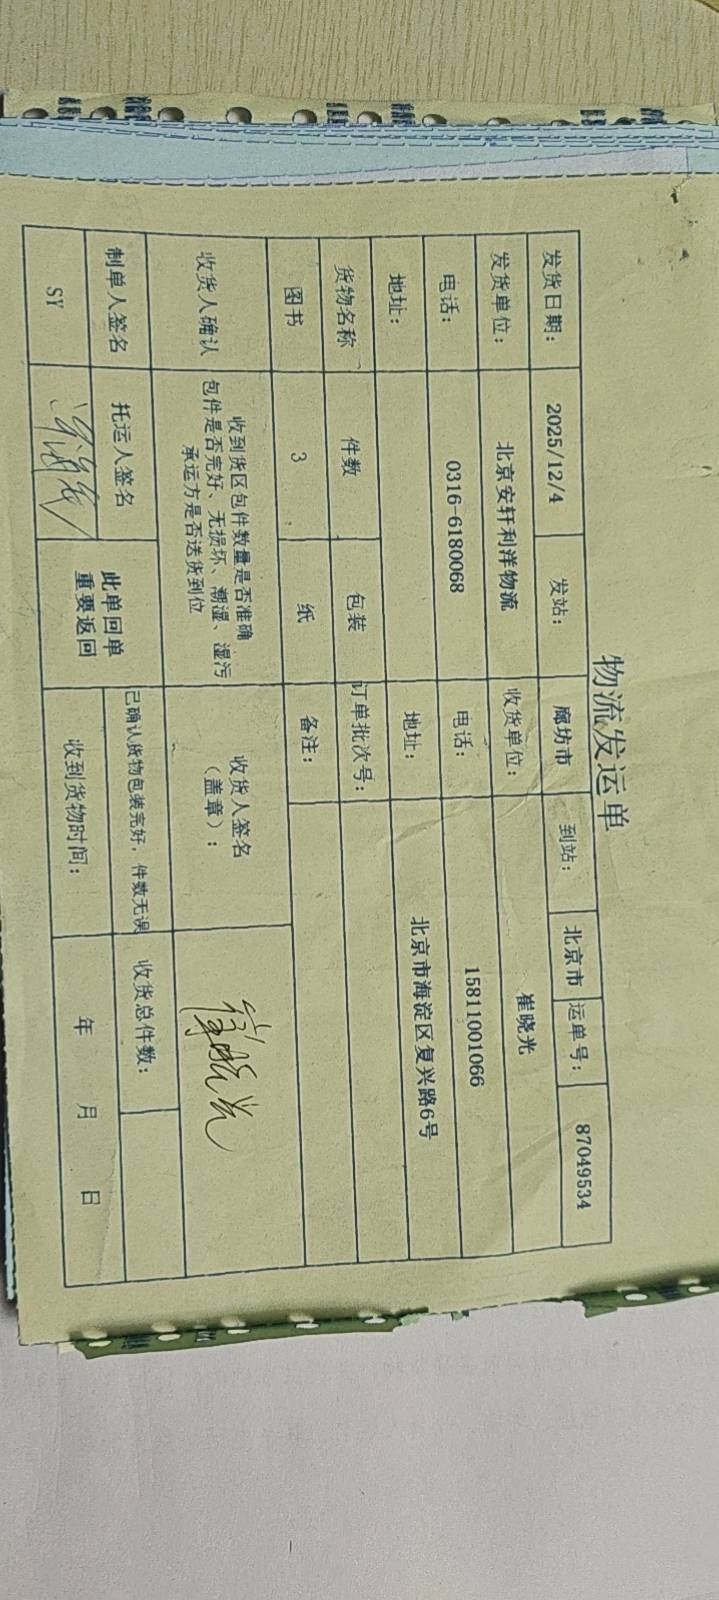 物流发运单
发货日期： 2025/12/4 发站： 廊坊市 到站： 北京市 运单号： 87049534
发货单位： 北京安轩利洋物流 收货单位： 崔晓光
电话： 0316-6180068 电话： 15811001066
地址： 地址： 北京市海淀区复兴路6号
货物名称 件数 包装 订单批次号：
图书 3 纸 备注：
收货人确认 收到货区包件数量是否准确
包件是否完好、无损坏、潮湿、湿污
承运方是否送货到位
收货人签名
（盖章）：
制单人签名 托运人签名 此单回单
重要返回
已确认货物包装完好，件数无误 收货总件数：
SY 收到货物时间： 年 月 日